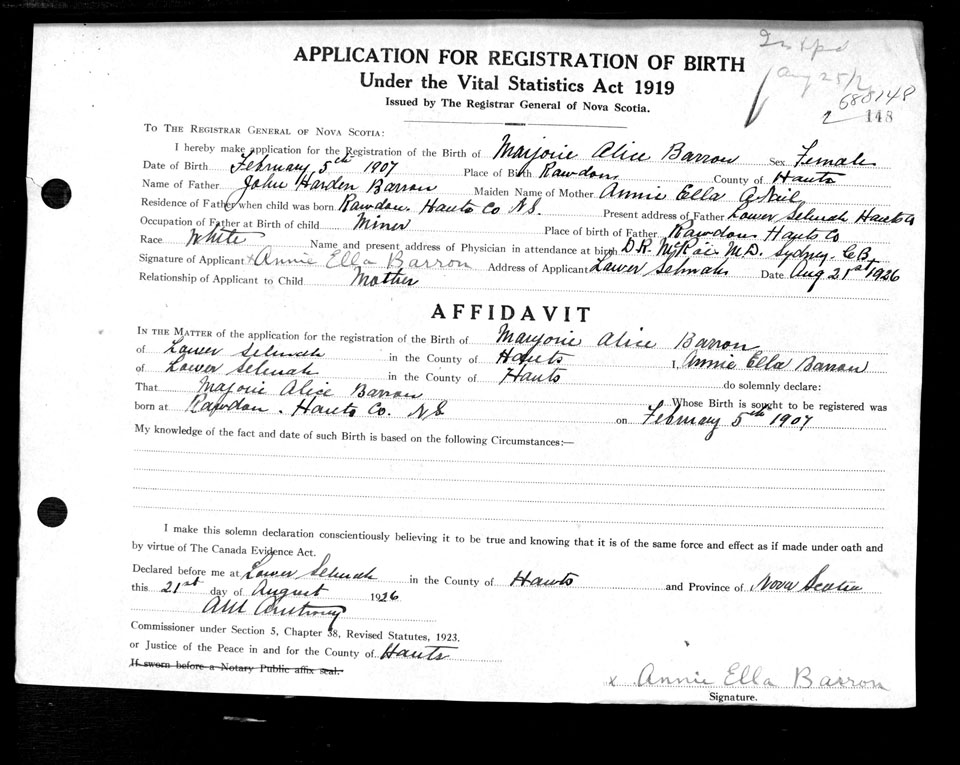 APPLICATION FOR REGISTRATION OF BIRTH
Under the Vital Statistics Act 1919
Issued by The Registrar General of Nova Scotia.
Aug 25/2
688148
2 148
TO THE REGISTRAR GENERAL OF NOVA SCOTIA:
I hereby make application for the Registration of the Birth of Marjorie Alice Barron Sex Female
Date of Birth February 5th 1907 Place of Birth Rawdon County of Hants
Name of Father John Harden Barron Maiden Name of Mother Annie Ella
Residence of Father when child was born Rawdon Hants Co N.S. Present address of Father Lower Selmah Hants Co
Occupation of Father at Birth of child Miner Place of birth of Father Rawdon Hants Co
Race White Name and present address of Physician in attendance at birth D.R. M.D. Sydney. C.B.
Signature of Applicant x Annie Ella Barron Address of Applicant Lower Selmah Date Aug 21st 1926
Relationship of Applicant to Child Mother
AFFIDAVIT
IN THE MATTER of the application for the registration of the Birth of Marjorie Alice Barron
of Lower Selmah in the County of Hants I, Annie Ella Barron
of Lower Selmah in the County of Hants do solemnly declare:
That Marjorie Alice Barron Whose Birth is sought to be registered was
born at Rawdon. Hants Co. N.S on February 5th 1907
My knowledge of the fact and date of such Birth is based on the following Circumstances:—
I make this solemn declaration conscientiously believing it to be true and knowing that it is of the same force and effect as if made under oath and
by virtue of The Canada Evidence Act.
Declared before me at Lower Selmah in the County of Hants and Province of Nova Scotia
this 21st day of August 1926
Commissioner under Section 5, Chapter 38, Revised Statutes, 1923.
or Justice of the Peace in and for the County of Hants
If sworn before a Notary Public affix seal.
x Annie Ella Barron
Signature.